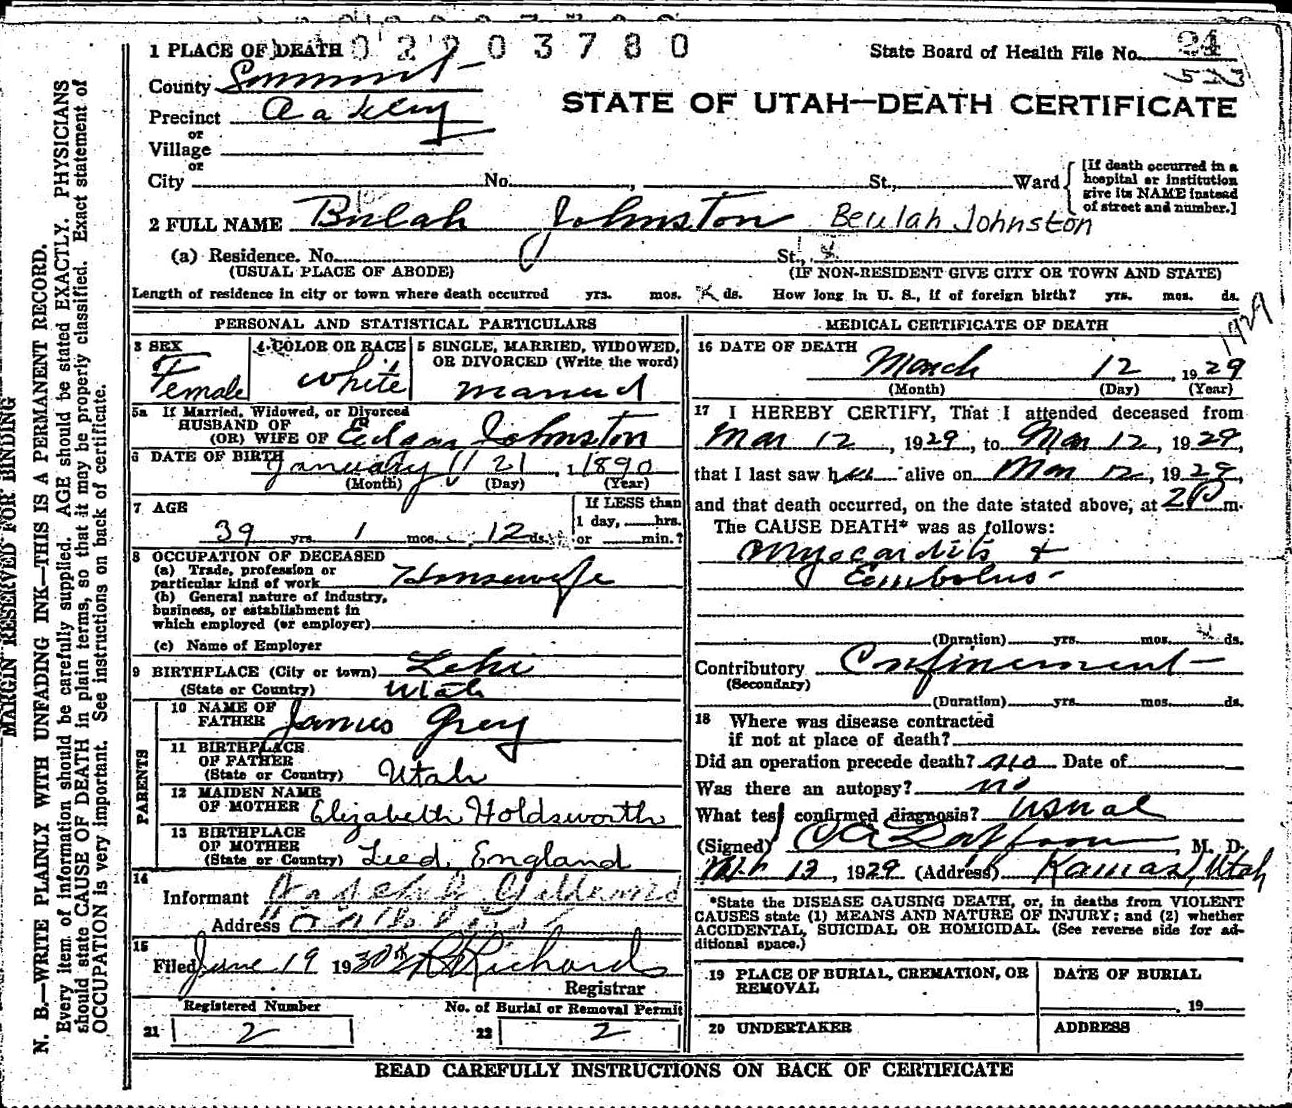 1 PLACE OF DEATH 0 2 2 0 3 7 8 0
State Board of Health File No. 24
523
County Summit
STATE OF UTAH—DEATH CERTIFICATE
Precinct Oakley
or
Village
or
City No. , St., Ward
[If death occurred in a hospital or institution give its NAME instead of street and number.]
2 FULL NAME Bulah Johnston Beulah Johnston
(a) Residence. No. St.,
(USUAL PLACE OF ABODE) (IF NON-RESIDENT GIVE CITY OR TOWN AND STATE)
Length of residence in city or town where death occurred yrs. mos. ds. How long in U. S., if of foreign birth? yrs. mos. ds.
PERSONAL AND STATISTICAL PARTICULARS
3 SEX
Female
4 COLOR OR RACE
White
5 SINGLE, MARRIED, WIDOWED,
OR DIVORCED (Write the word)
married
5a If Married, Widowed, or Divorced
HUSBAND OF
(OR) WIFE OF Edgar Johnston
6 DATE OF BIRTH January 21, 1890
(Month) (Day) (Year)
7 AGE
39 yrs. 1 mos. 12 ds.
If LESS than
1 day, hrs.
or min.?
8 OCCUPATION OF DECEASED
(a) Trade, profession or
particular kind of work Housewife
(b) General nature of industry,
business, or establishment in
which employed (or employer)
(c) Name of Employer
9 BIRTHPLACE (City or town) Lehi
(State or Country) Utah
PARENTS
10 NAME OF
FATHER James Grey
11 BIRTHPLACE
OF FATHER
(State or Country) Utah
12 MAIDEN NAME
OF MOTHER Elizabeth Holdsworth
13 BIRTHPLACE
OF MOTHER
(State or Country) Leed, England
14
Informant
Address
15
Filed June 19 1930 Richards
Registrar
Registered Number No. of Burial or Removal Permit
21 2 22 2
MEDICAL CERTIFICATE OF DEATH
1929
16 DATE OF DEATH
March 12, 1929
(Month) (Day) (Year)
17 I HEREBY CERTIFY, That I attended deceased from
Mar 12, 1929, to Mar 12, 1929,
that I last saw her alive on Mar 12, 1929,
and that death occurred, on the date stated above, at 2 P m.
The CAUSE DEATH* was as follows:
Myocarditis &
Embolus-
(Duration) yrs. mos. ds.
Contributory Confinement
(Secondary)
(Duration) yrs. mos. ds.
18 Where was disease contracted
if not at place of death?
Did an operation precede death? no Date of
Was there an autopsy? no
What test confirmed diagnosis? usual
(Signed) M. D.
12, 1929 (Address) Kamas, Utah
*State the DISEASE CAUSING DEATH, or, in deaths from VIOLENT
CAUSES state (1) MEANS AND NATURE OF INJURY; and (2) whether
ACCIDENTAL, SUICIDAL OR HOMICIDAL. (See reverse side for ad-
ditional space.)
19 PLACE OF BURIAL, CREMATION, OR
REMOVAL
DATE OF BURIAL
19
20 UNDERTAKER ADDRESS
READ CAREFULLY INSTRUCTIONS ON BACK OF CERTIFICATE
MARGIN RESERVED FOR BINDING
N. B.—WRITE PLAINLY WITH UNFADING INK—THIS IS A PERMANENT RECORD.
Every item of information should be carefully supplied. AGE should be stated EXACTLY. PHYSICIANS
should state CAUSE OF DEATH in plain terms, so that it may be properly classified. Exact statement of
OCCUPATION is very important. See instructions on back of certificate.